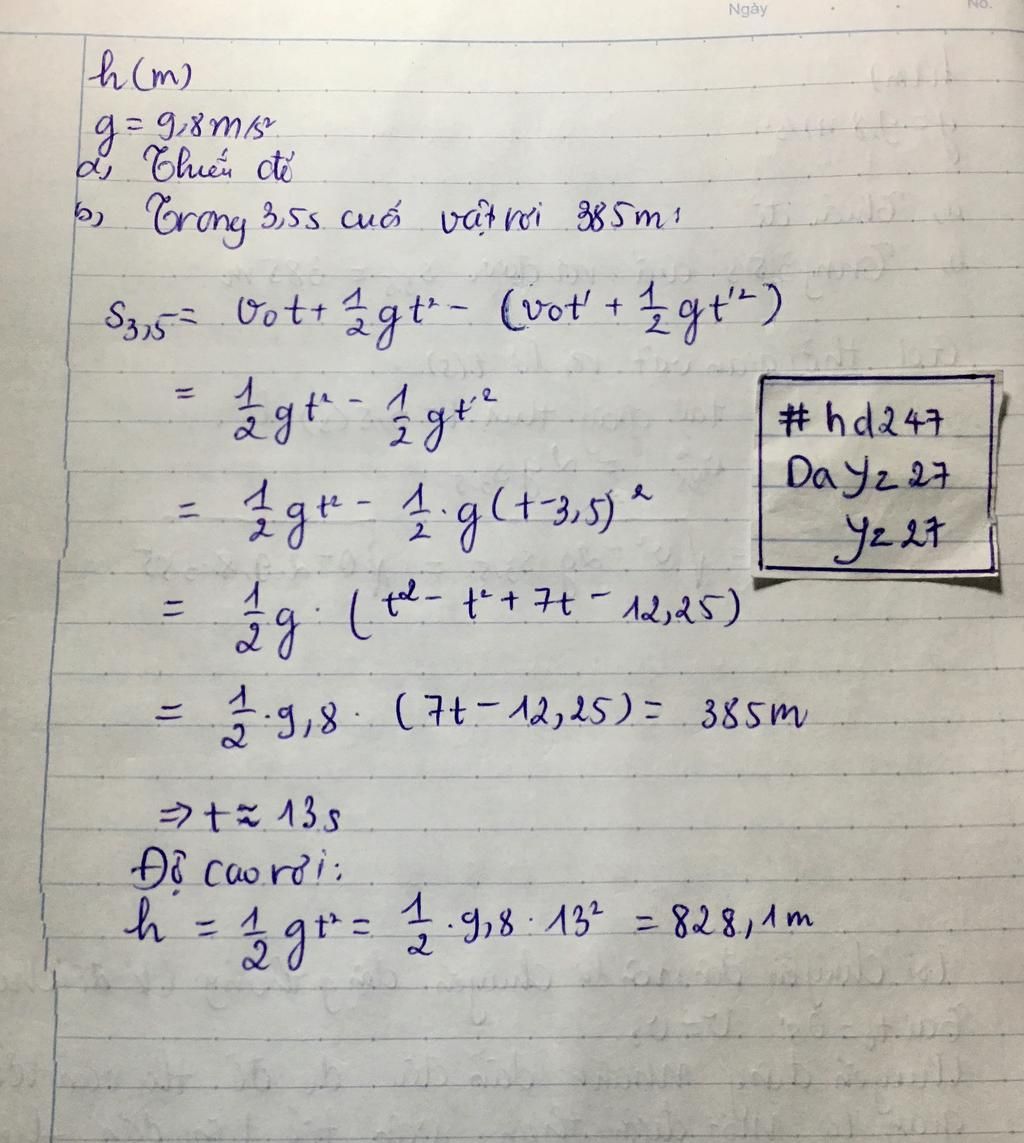 Ngày
No.
h(m)
g = 9,8m/s²
a, Thiếu đề
b, Trong 3,5s cuối vật rơi 385m:
S3,5 = v₀t + 1/2 gt² - (v₀t' + 1/2 gt'²)
= 1/2 gt² - 1/2 gt'²
= 1/2 gt² - 1/2 . g(t-3,5)²
= 1/2 g . (t² - t² + 7t - 12,25)
= 1/2 . 9,8 . (7t - 12,25) = 385m
⇒ t ≈ 13s
Độ cao rơi:
h = 1/2 gt² = 1/2 . 9,8 . 13² = 828,1m
#hd247
DaYz27
Yz27